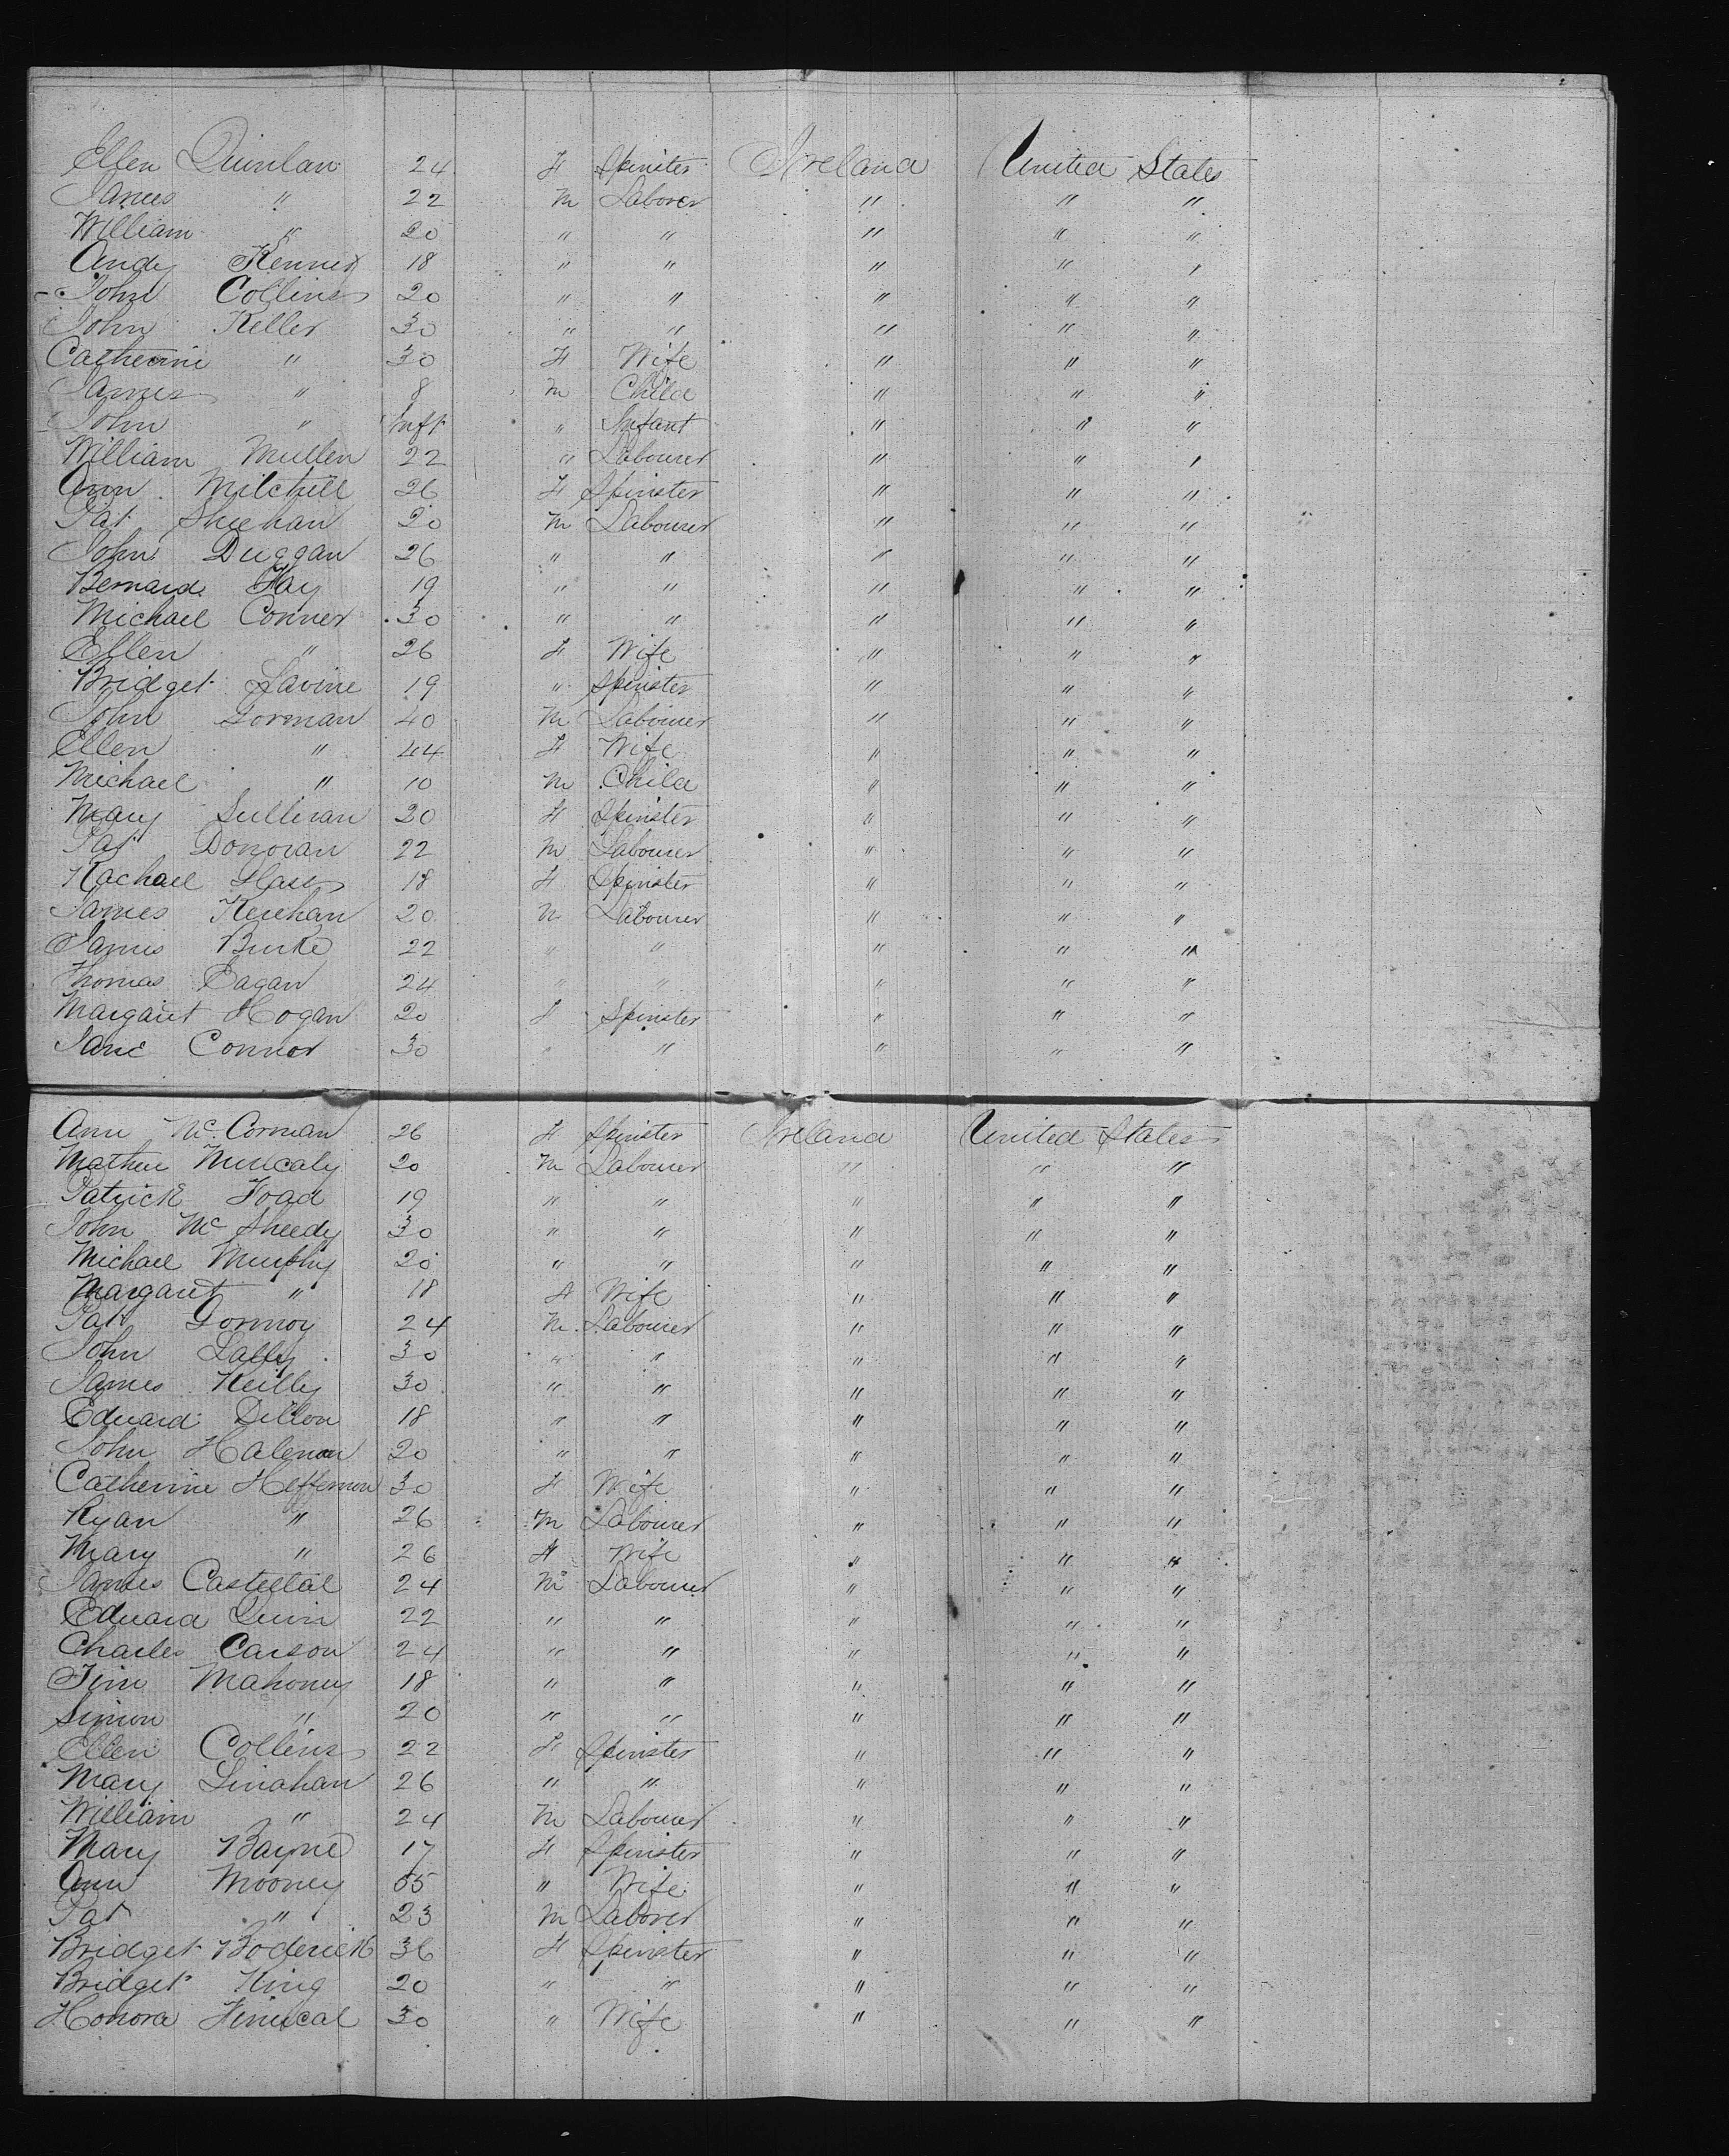 Ellen Quinlan 24 F Spinster Ireland United States
James " 22 M Laborer " " "
William " 20 " " " " "
Andy Kenney 18 " " " " "
John Collins 20 " " " " "
John Keller 30 " " " " "
Catherine " 30 F Wife " " "
James " 8 M Child " " "
John " Inft " Infant " " "
William Mullen 22 " Labourer " " "
Ann Mitchell 26 F Spinster " " "
Pat Sheehan 20 M Labourer " " "
John Duggan 26 " " " " "
Bernard Fay 19 " " " " "
Michael Conner 30 " " " " "
Ellen " 26 F Wife " " "
Bridget Lavine 19 " Spinster " " "
John Gorman 40 M Labourer " " "
Ellen " 44 F Wife " " "
Michael " 10 M Child " " "
Mary Sullivan 20 F Spinster " " "
Pat Donovan 22 M Labourer " " "
Rachael 18 F Spinster " " "
James 20 M Labourer " " "
James Burke 22 " " " " "
Thomas Eagan 24 " " " " "
Margaret Hogan 20 F Spinster " " "
Jane Connor 30 " " " " "
Ann Mc Corman 26 F Spinster Ireland United States
Mathew Mulcaly 20 M Labourer " " "
Patrick Foad 19 " " " " "
John Mc Sheedy 30 " " " " "
Michael Murphy 20 " " " " "
Margaret " 18 F Wife " " "
Pat Gormoy 24 M Labourer " " "
John Lally 30 " " " " "
James Reilly 30 " " " " "
Edward Dillon 18 " " " " "
John Halenan 20 " " " " "
Catherine Heffernon 30 F Wife " " "
Ryan " 26 M Labourer " " "
Mary " 26 F Wife " " "
James 24 M Labourer " " "
Edward 22 " " " " "
Charles Carson 24 " " " " "
Tim Mahoney 18 " " " " "
Simon " 20 " " " " "
Ellen Collins 22 F Spinster " " "
Mary Linahan 26 " " " " "
William " 24 M Labourer " " "
Mary Bayne 17 F Spinster " " "
Ann Mooney 55 " Wife " " "
Pat " 23 M Laborer " " "
Bridget Boderick 36 F Spinster " " "
Bridget King 20 " " " " "
Honora 30 " Wife " " "